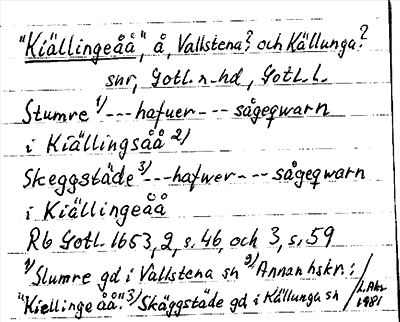 "Kiällingeåå", å, Vallstena? och Källunga?
snr, Gotl. n. hd, Gotl. l.
Stumre 1) --- hafuer --- sågeqwarn
i Kiällingsåå 2)
Skeggstäde 3) --- hafwer --- sågeqwarn
i Kiällingeåå
Rb Gotl. 1653, 2, s. 46, och 3, s. 59
1) Slumre gd i Vallstena sn 2) Annan hskr.:
"Kiellingeåå". 3) Skäggstäde gd i Källunga sn
1981